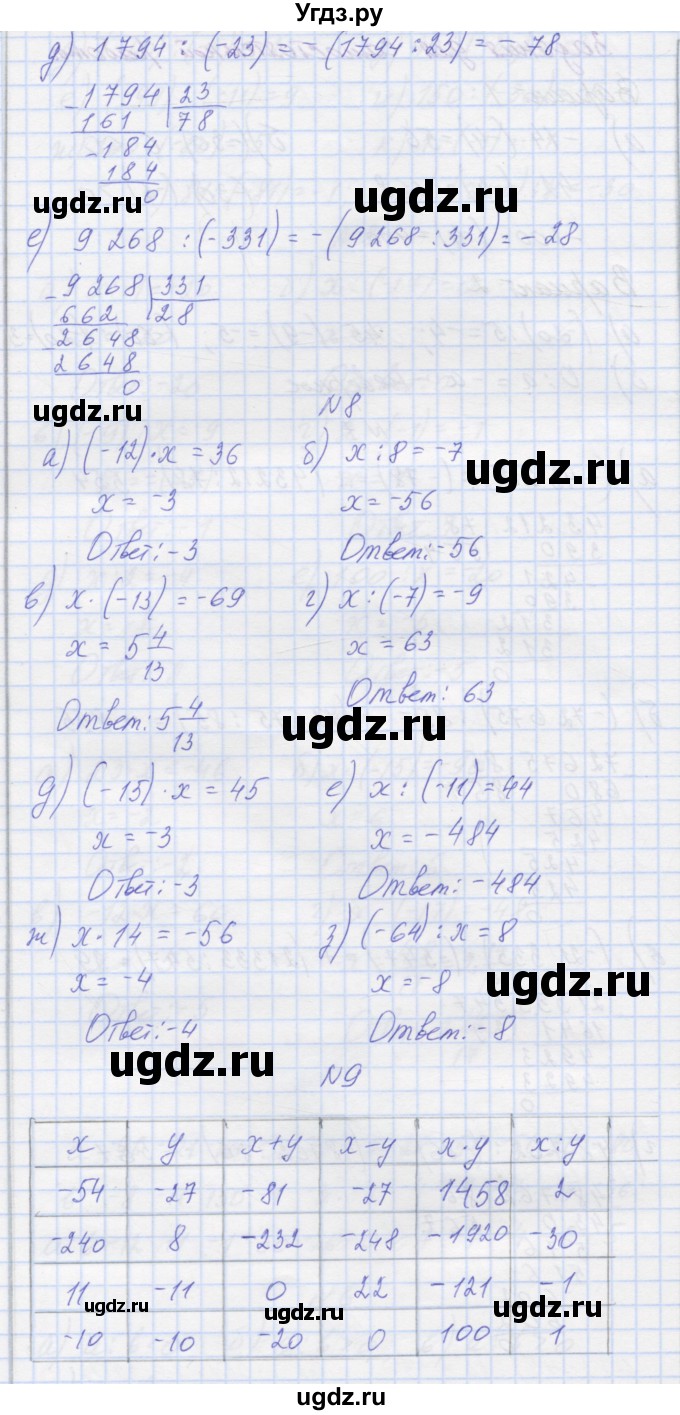 Угдз.ру
д) 1 794 : (-23) = -(1794 : 23) = -78
-1794 | 23
161 | 78
-184
184
0
ugdz.ru ugdz.ru
е) 9 268 : (-331) = -(9 268 : 331) = -28
-9 268 | 331
662 | 28
-2648
2648
0
ugdz.ru
N8
а) (-12)·x = 36 б) x : 8 = -7
ugdz.ru
x = -3 x = -56
Ответ: -3 Ответ: -56
в) x·(-13) = -69 г) x : (-7) = -9
x = 5 4/13 x = 63
Ответ: 5 4/13 Ответ: 63
ugdz.ru
д) (-15)·x = 45 е) x : (-11) = 44
x = -3 x = -484
Ответ: -3 Ответ: -484
ugdz.ru
ж) x·14 = -56 з) (-64) : x = 8
x = -4 x = -8
ugdz.ru
Ответ: -4 Ответ: -8
ugdz.ru
N9
x y x+y x-y x·y x:y
-54 -27 -81 -27 1458 2
-240 8 -232 -248 -1920 -30
11 -11 0 22 -121 -1
ugdz.ru ugdz.ru ugdz.ru
-10 -10 -20 0 100 1
ugdz.ru